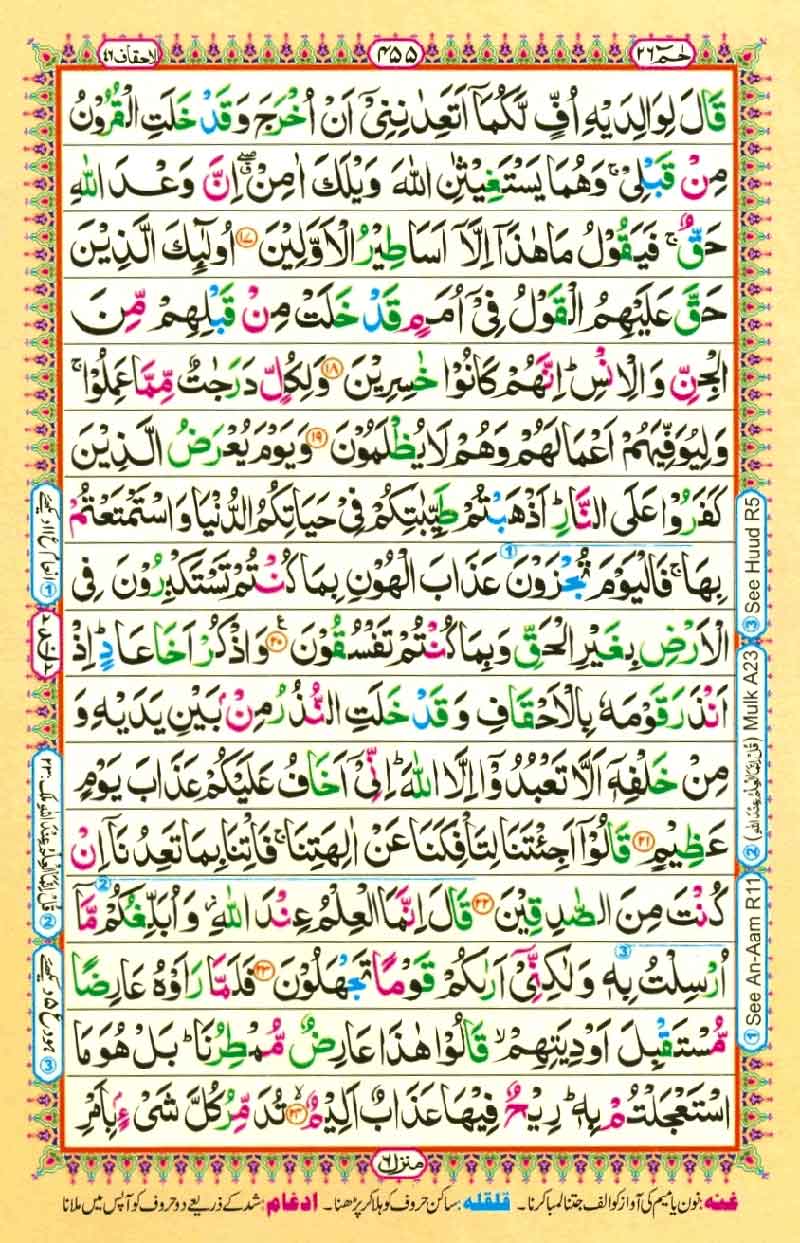 حٰمٓ ٢٦
٤٥٥
الاحقاف ٤٦
قَالَ لِوَالِدَیْهِ اُفٍّ لَّكُمَاۤ اَتَعِدٰنِنِیْۤ اَنْ اُخْرَجَ وَ قَدْ خَلَتِ الْقُرُوْنُ
مِنْ قَبْلِیْ ۚ وَهُمَا یَسْتَغِیْثٰنِ اللّٰهَ وَیْلَكَ اٰمِنْ ۖۗ اِنَّ وَعْدَ اللّٰهِ
حَقٌّ ۚ فَیَقُوْلُ مَا هٰذَاۤ اِلَّاۤ اَسَاطِیْرُ الْاَوَّلِیْنَ ﴿۱۷﴾ اُولٰٓىِٕكَ الَّذِیْنَ
حَقَّ عَلَیْهِمُ الْقَوْلُ فِیْۤ اُمَمٍ قَدْ خَلَتْ مِنْ قَبْلِهِمْ مِّنَ
الْجِنِّ وَالْاِنْسِ ؕ اِنَّهُمْ كَانُوْا خٰسِرِیْنَ ﴿۱۸﴾ وَلِكُلٍّ دَرَجٰتٌ مِّمَّا عَمِلُوْا ۚ
وَلِیُوَفِّیَهُمْ اَعْمَالَهُمْ وَهُمْ لَا یُظْلَمُوْنَ ﴿۱۹﴾ وَیَوْمَ یُعْرَضُ الَّذِیْنَ
كَفَرُوْا عَلَی النَّارِ ؕ اَذْهَبْتُمْ طَیِّبٰتِكُمْ فِیْ حَیَاتِكُمُ الدُّنْیَا وَاسْتَمْتَعْتُمْ
بِهَا ۚ فَالْیَوْمَ تُجْزَوْنَ عَذَابَ الْهُوْنِ بِمَا كُنْتُمْ تَسْتَكْبِرُوْنَ فِی
الْاَرْضِ بِغَیْرِ الْحَقِّ وَبِمَا كُنْتُمْ تَفْسُقُوْنَ ﴿۲۰﴾ وَاذْكُرْ اَخَا عَادٍ ؕ اِذْ
اَنْذَرَ قَوْمَهٗ بِالْاَحْقَافِ وَ قَدْ خَلَتِ النُّذُرُ مِنْۢ بَیْنِ یَدَیْهِ وَ
مِنْ خَلْفِهٖۤ اَلَّا تَعْبُدُوْۤا اِلَّا اللّٰهَ ؕ اِنِّیْۤ اَخَافُ عَلَیْكُمْ عَذَابَ یَوْمٍ
عَظِیْمٍ ﴿۲۱﴾ قَالُوْۤا اَجِئْتَنَا لِتَاْفِكَنَا عَنْ اٰلِهَتِنَا ۚ فَاْتِنَا بِمَا تَعِدُنَاۤ اِنْ
كُنْتَ مِنَ الصّٰدِقِیْنَ ﴿۲۲﴾ قَالَ اِنَّمَا الْعِلْمُ عِنْدَ اللّٰهِ ۖؗ وَاُبَلِّغُكُمْ مَّاۤ
اُرْسِلْتُ بِهٖ وَلٰكِنِّیْۤ اَرٰىكُمْ قَوْمًا تَجْهَلُوْنَ ﴿۲۳﴾ فَلَمَّا رَاَوْهُ عَارِضًا
مُّسْتَقْبِلَ اَوْدِیَتِهِمْ ۙ قَالُوْا هٰذَا عَارِضٌ مُّمْطِرُنَا ؕ بَلْ هُوَ مَا
اسْتَعْجَلْتُمْ بِهٖ ؕ رِیْحٌ فِیْهَا عَذَابٌ اَلِیْمٌ ﴿۲۴﴾ۙ تُدَمِّرُ كُلَّ شَیْءٍۭ بِاَمْرِ
منزل ٦
③ See Huud R5
② (قُلْ اِنَّمَا الْعِلْمُ عِنْدَ اللّٰهِ) Mulk A23
① See An-Aam R11
① انعام ع ١١ دیکھیے
② قُلْ اِنَّمَا الْعِلْمُ عِنْدَ اللّٰهِ ملک ٢٣
③ ہود ع ٥ دیکھیے
غنه: نون یا میم کی آواز کو الف جتنا لمبا کرنا۔ قلقله: ساکن حروف کو ہلا کر پڑھنا۔ ادغام: شد کے ذریعے دو حروف کو آپس میں ملانا